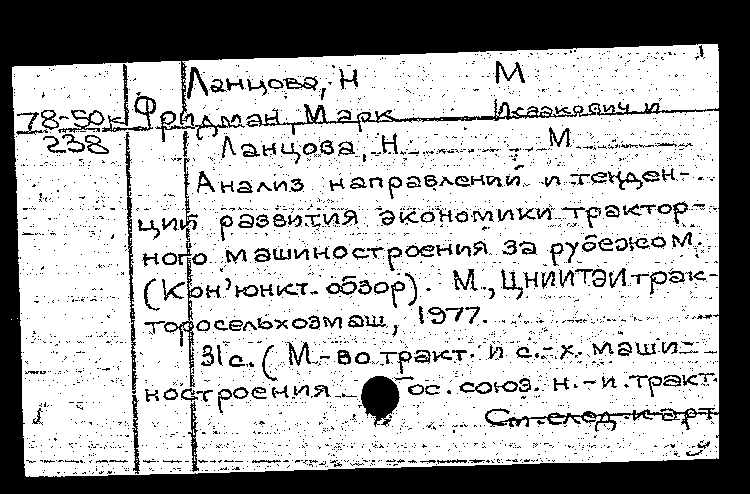 Ланцова, Н М
78-50к Фридман, Марк Исаакович и
238 Ланцова, Н М
Анализ направлений и тенден-
ций развития экономики трактор-
ного машиностроения за рубежом.
(Кон'юнкт. обзор). М., ЦНИИТЭИтрак-
торосельхозмаш, 1977.
31с. (М-во тракт. и с.-х. маши-
ностроения ос. союз. н.-и. тракт.
См. след к-арт